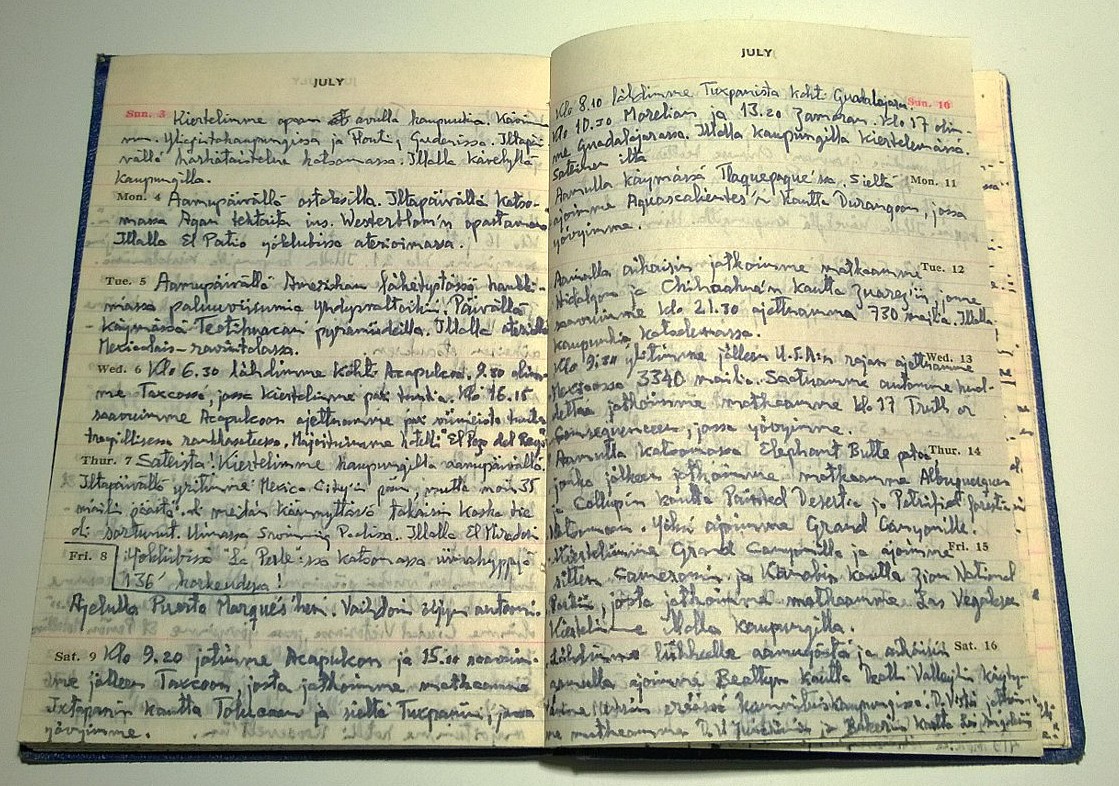 JULY
Sun. 3 Kiertelimme oman avulla kaupunkia. Kävim-
me Yliopistokaupungissa ja Gardenissa. Iltapäi-
vällä härkätaistelua katsomassa. Illalla kävelyllä
kaupungilla.
Mon. 4 Aamupäivällä ostoksilla. Iltapäivällä katso-
massa Agan tehtaita ins. Westerblom'in opastamana
Illalla El Patio yöklubissa aterioimassa.
Tue. 5 Aamupäivällä Amerikan lähetystössä hankki-
massa paluuviisumia Yhdysvaltoihin. Päivällä
käymässä Teotihuacan pyramideilla. Illalla aterialla
Mexicolais-ravintolassa.
Wed. 6 Klo 6.30 lähdimme kohti Acapulcoa. 9.30 olim-
me Taxcossa, jossa kiertelimme pari tuntia. Klo 16.15
saavuimme Acapulcoon ajettuamme viimeistä
trooppillisessa rankkasateessa. Majoituimme hotelli El Pozo del Rey
Thur. 7 Sateista! Kiertelimme kaupungilla aamupäivällä.
Iltapäivällä yritimme Mexico City'in päin, mutta noin 35
mailin päästä oli meidän käännyttävä takaisin koska tie
oli sortunut. Uimassa Swimming Poolissa. Illalla El Mirador
Fri. 8 yöklubissa "La Perla"ssa katsomassa uimahyppyjä
136' korkeudesta!
Ajelulla Puerto Marqués'hen. Vaihdoin öljyn autooni.
Sat. 9 Klo 9.20 jätimme Acapulcon ja 15.00 saavuim-
me jälleen Taxcoon, josta jatkoimme matkaamme
Ixtapanin kautta Tolucaan ja sieltä Tuxpaniin, jossa
yövyimme.
JULY
Klo 8.10 lähdimme Tuxpanista kohti Guadalajara. Sun. 10
Klo 10.30 Morelian ja 13.20 Zamoran. Klo 17 olim-
me Guadalajarassa. Illalla kaupungilla kiertelemässä.
Sateinen ilta
Aamulla käymässä Tlaquepaque'ssa. Sieltä Mon. 11
ajoimme Aguascalientes'n kautta Durangoon, jossa
yövyimme.
Aamulla aikaisin jatkoimme matkaamme Tue. 12
Hidalgon ja Chihuahua'n kautta Juarez'iin, jonne
saavuimme klo 21.30 ajettuamme 730 mailia. Illalla
kaupunkia katselemassa.
Klo 9.30 ylitimme jälleen U.S.A:n rajan ajettuamme Wed. 13
Mexicossa 3340 mailia. Saatuamme automme huol-
lettua jatkoimme matkaamme klo 17 Truth or
Consequences, jossa yövyimme.
Aamulla katsomassa Elephant Butte patoa Thur. 14
jonka jälkeen jatkoimme matkaamme Albuquerquen
ja Gallupin kautta Painted Desertia ja Petrified Forestia
katsomaan. Yöksi ajoimme Grand Canyonille.
Kiertelimme Grand Canyonilla ja ajoimme Fri. 15
sitten Cameronin ja Kanabin kautta Zion National
Parkiin, josta jatkoimme matkaamme Las Vegakseen
Kiertelimme illalla kaupungilla.
Lähdimme liikkeelle aamuyöstä ja aikaisin Sat. 16
aamulla ajoimme Beattyn kautta Death Valley'in
eräässä D.V:stä jatkoim-
me matkaamme ja Bakerin kautta Los Angelesiin